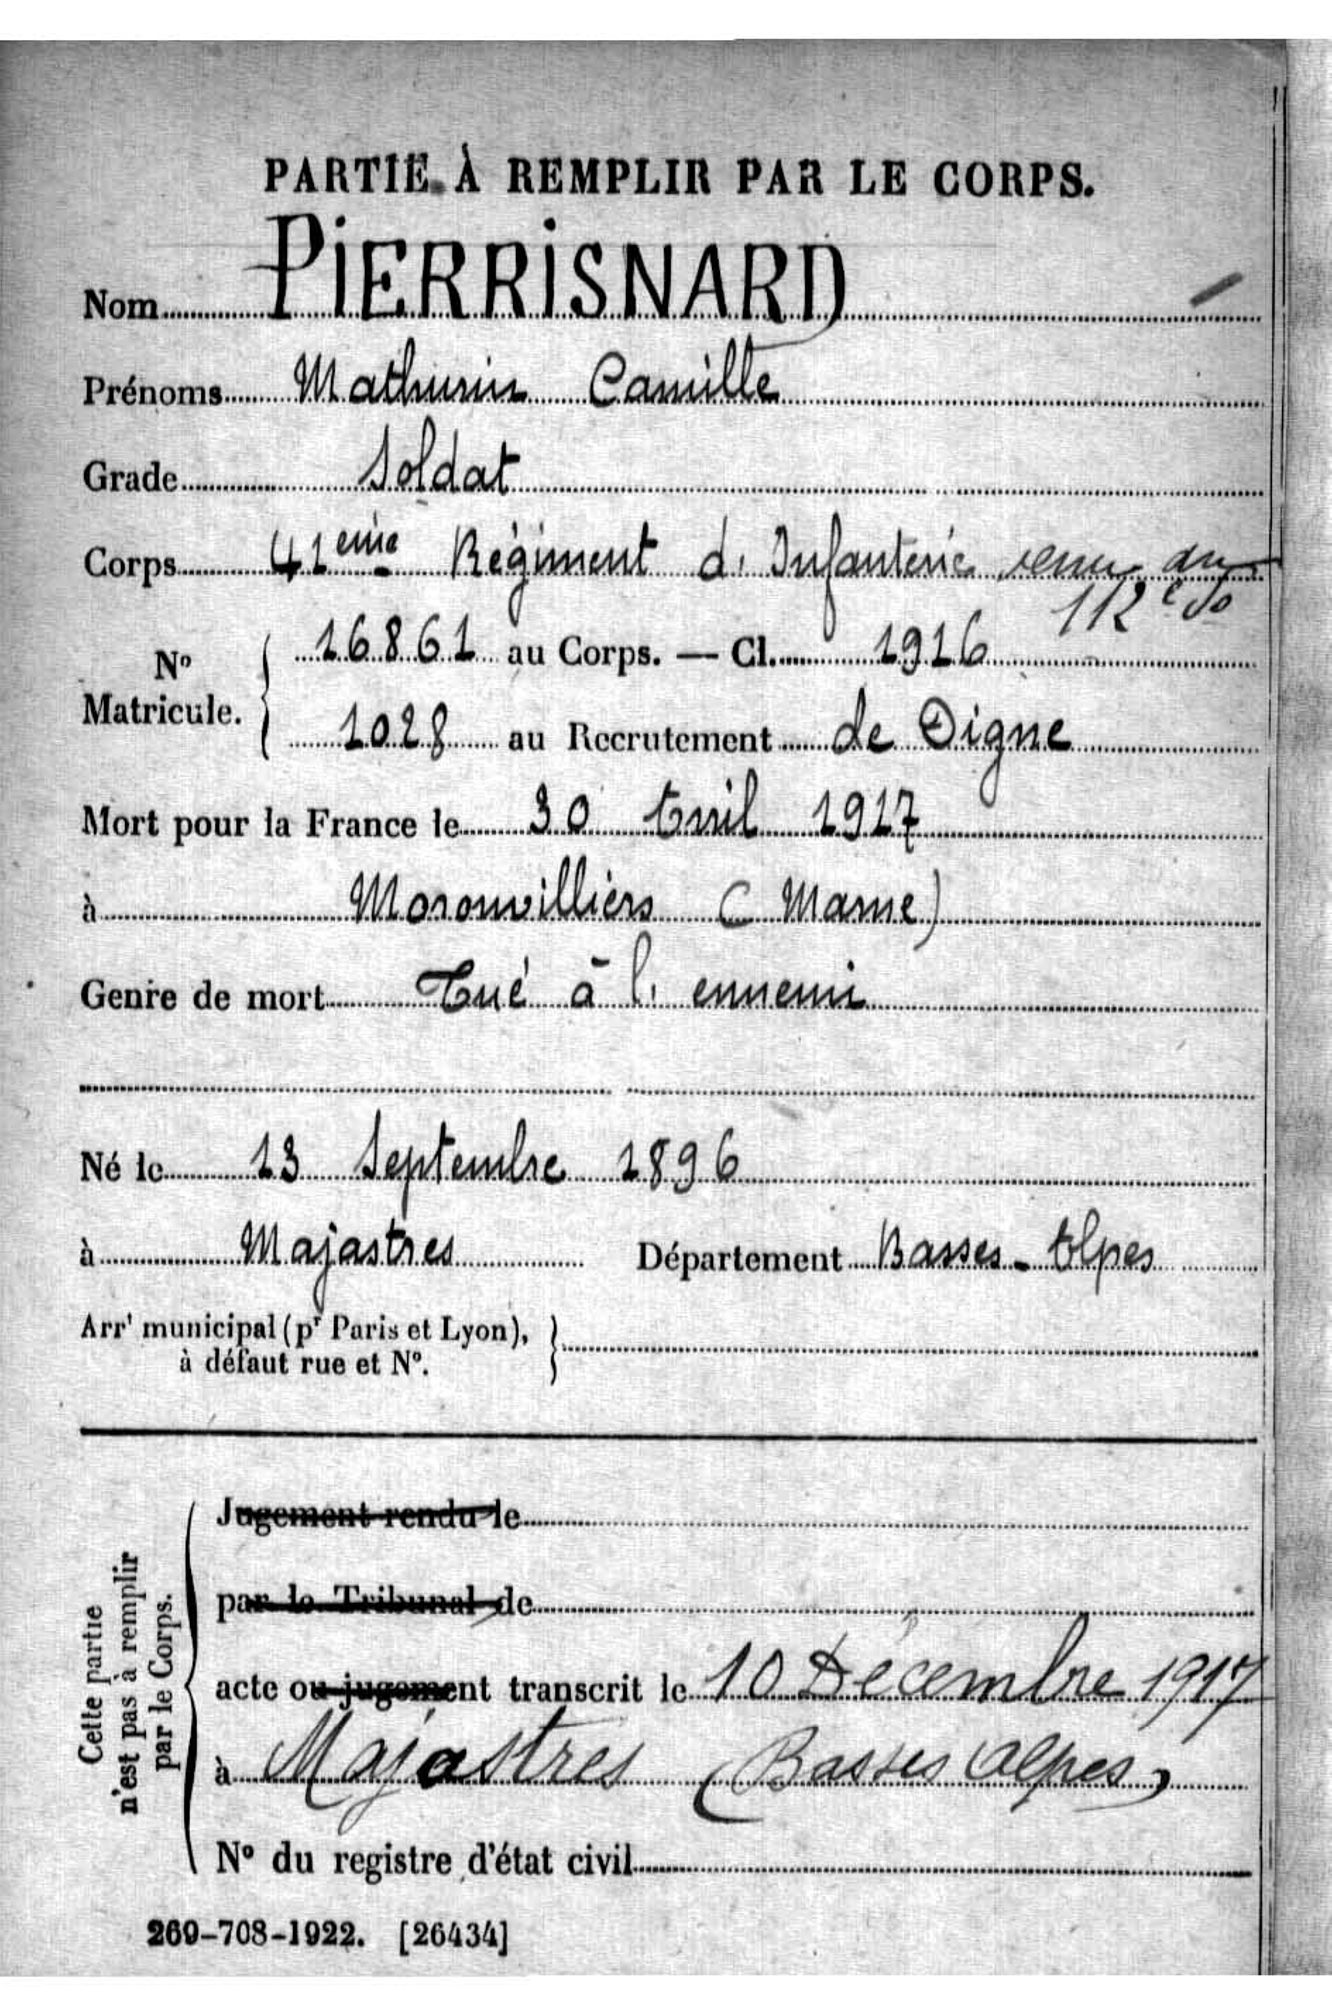 PARTIE À REMPLIR PAR LE CORPS.
Nom PIERRISNARD
Prénoms Mathurin Camille
Grade Soldat
Corps 41eme Régiment d'Infanterie venu du
112e do
N° Matricule. 16861 au Corps. — Cl. 1916
1028 au Recrutement de Digne
Mort pour la France le 30 Avril 1917
à Moronvilliers (Marne)
Genre de mort Tué à l'ennemi
Né le 13 Septembre 1896
à Majastres Département Basses-Alpes
Arrt municipal (pr Paris et Lyon),
à défaut rue et N°.
Cette partie
n'est pas à remplir
par le Corps.
Jugement rendu le
par le Tribunal de
acte ou jugement transcrit le 10 Décembre 1917
à Majastres (Basses Alpes)
N° du registre d'état civil
269-708-1922. [26434]